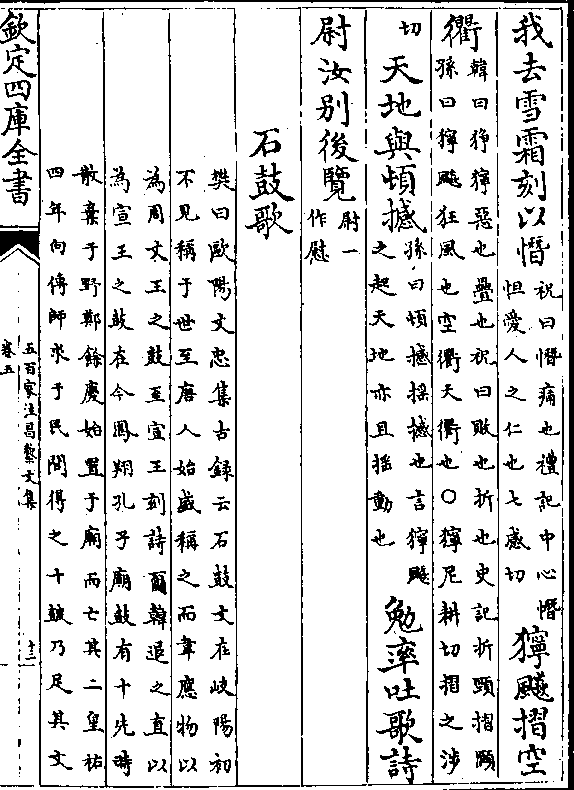 我去雪霜刻以憯祝曰憯痛也禮記中心憯怛愛人之仁也七感切獰飈摺空
衢韓曰猙獰惡也疊也祝曰敗也折也史記折頸摺頤孫曰獰飈狂風也空衢天衢也○獰尼耕切摺之涉
切天地與頓撼孫曰頓撼揺撼也言獰飈之起天地亦且揺動也勉率吐歌詩
尉汝别後覽尉一作慰
石鼓歌
樊曰歐陽文忠集古録云石鼓文在岐陽初
不見稱于世至唐人始盛稱之而韋應物以
為周文王之鼓至宣王刻詩爾韓退之直以
為宣王之鼓在今鳳翔孔子廟鼓有十先時
散棄于野鄭餘慶始置于廟而亡其二皇祐
四年向傳師求于民間得之十鼓乃足其文
欽定四庫全書
五百家注昌黎文集
卷五
十二